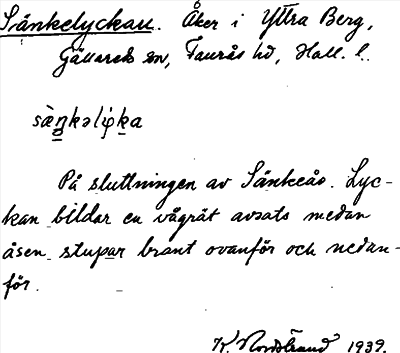 Sänkelyckan. Åker i Yttra Berg,
Gällareds sn, Faurås hd, Hall. l.
sàŋkəlỳka
På sluttningen av Sänkeås. Lyc-
kan bildar en vågrät avsats medan
åsen stupar brant ovanför och nedan-
för.
K. Nordstrand 1939.